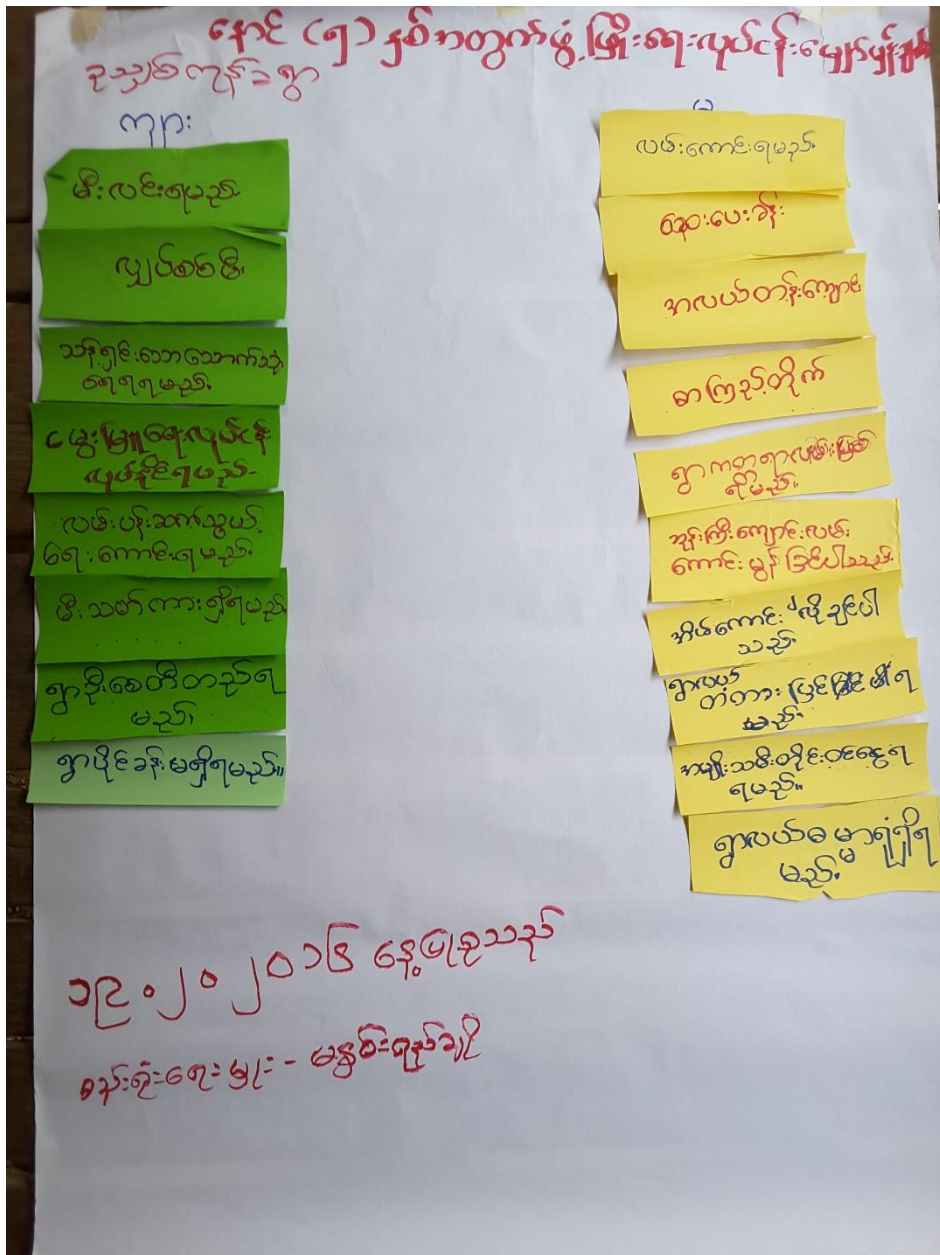 နောင် (၅) နှစ်အတွက်ဖွံ့ဖြိုးရေးလုပ်ငန်းမျှော်မှန်းချက်
ဥသျှစ်ကုန်းရွာ
ကျား
မီးလင်းရမည်။
လျှပ်စစ်မီး
သန့်ရှင်းသောသောက်သုံး
ရေရရမည်။
မွေးမြူရေးလုပ်ငန်း
လုပ်နိုင်ရမည်။
လမ်းပန်းဆက်သွယ်
ရေးကောင်းရမည်။
မီးသတ်ကားရှိရမည်။
ရွာဦးစေတီတည်ရ
မည်။
ရွာပိုင်ခန်းမရှိရမည်။
မ
လမ်းကောင်းရမည်။
ဆေးပေးခန်း
အလယ်တန်းကျောင်း
စာကြည့်တိုက်
ရွာကတ္တရာလမ်းဖြစ်
ရမည်။
ဘုန်းကြီးကျောင်းလမ်း
ကောင်းမွန်ခြင်ပါသည်။
အိမ်ကောင်း လိုချင်ပါ
သည်။
ရွာလယ်
တံတား ပြင်နိုင်ရ
မည်။
အမျိုးသမီးတိုင်းဝင်ငွေရ
ရမည်။
ရွာလယ်ဓမ္မာရုံရှိရ
မည်။
၁၉.၂၀၂၀၁၆ နေ့ပြုစုသည်
စည်းရုံးရေးမှုး -